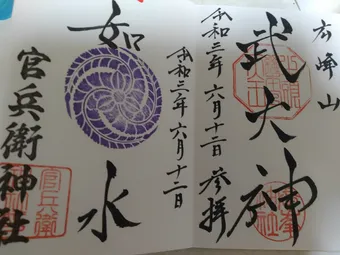 広峰山
武大神
令和三年六月十二日参拝
如水
令和三年六月十二日
官兵衛神社